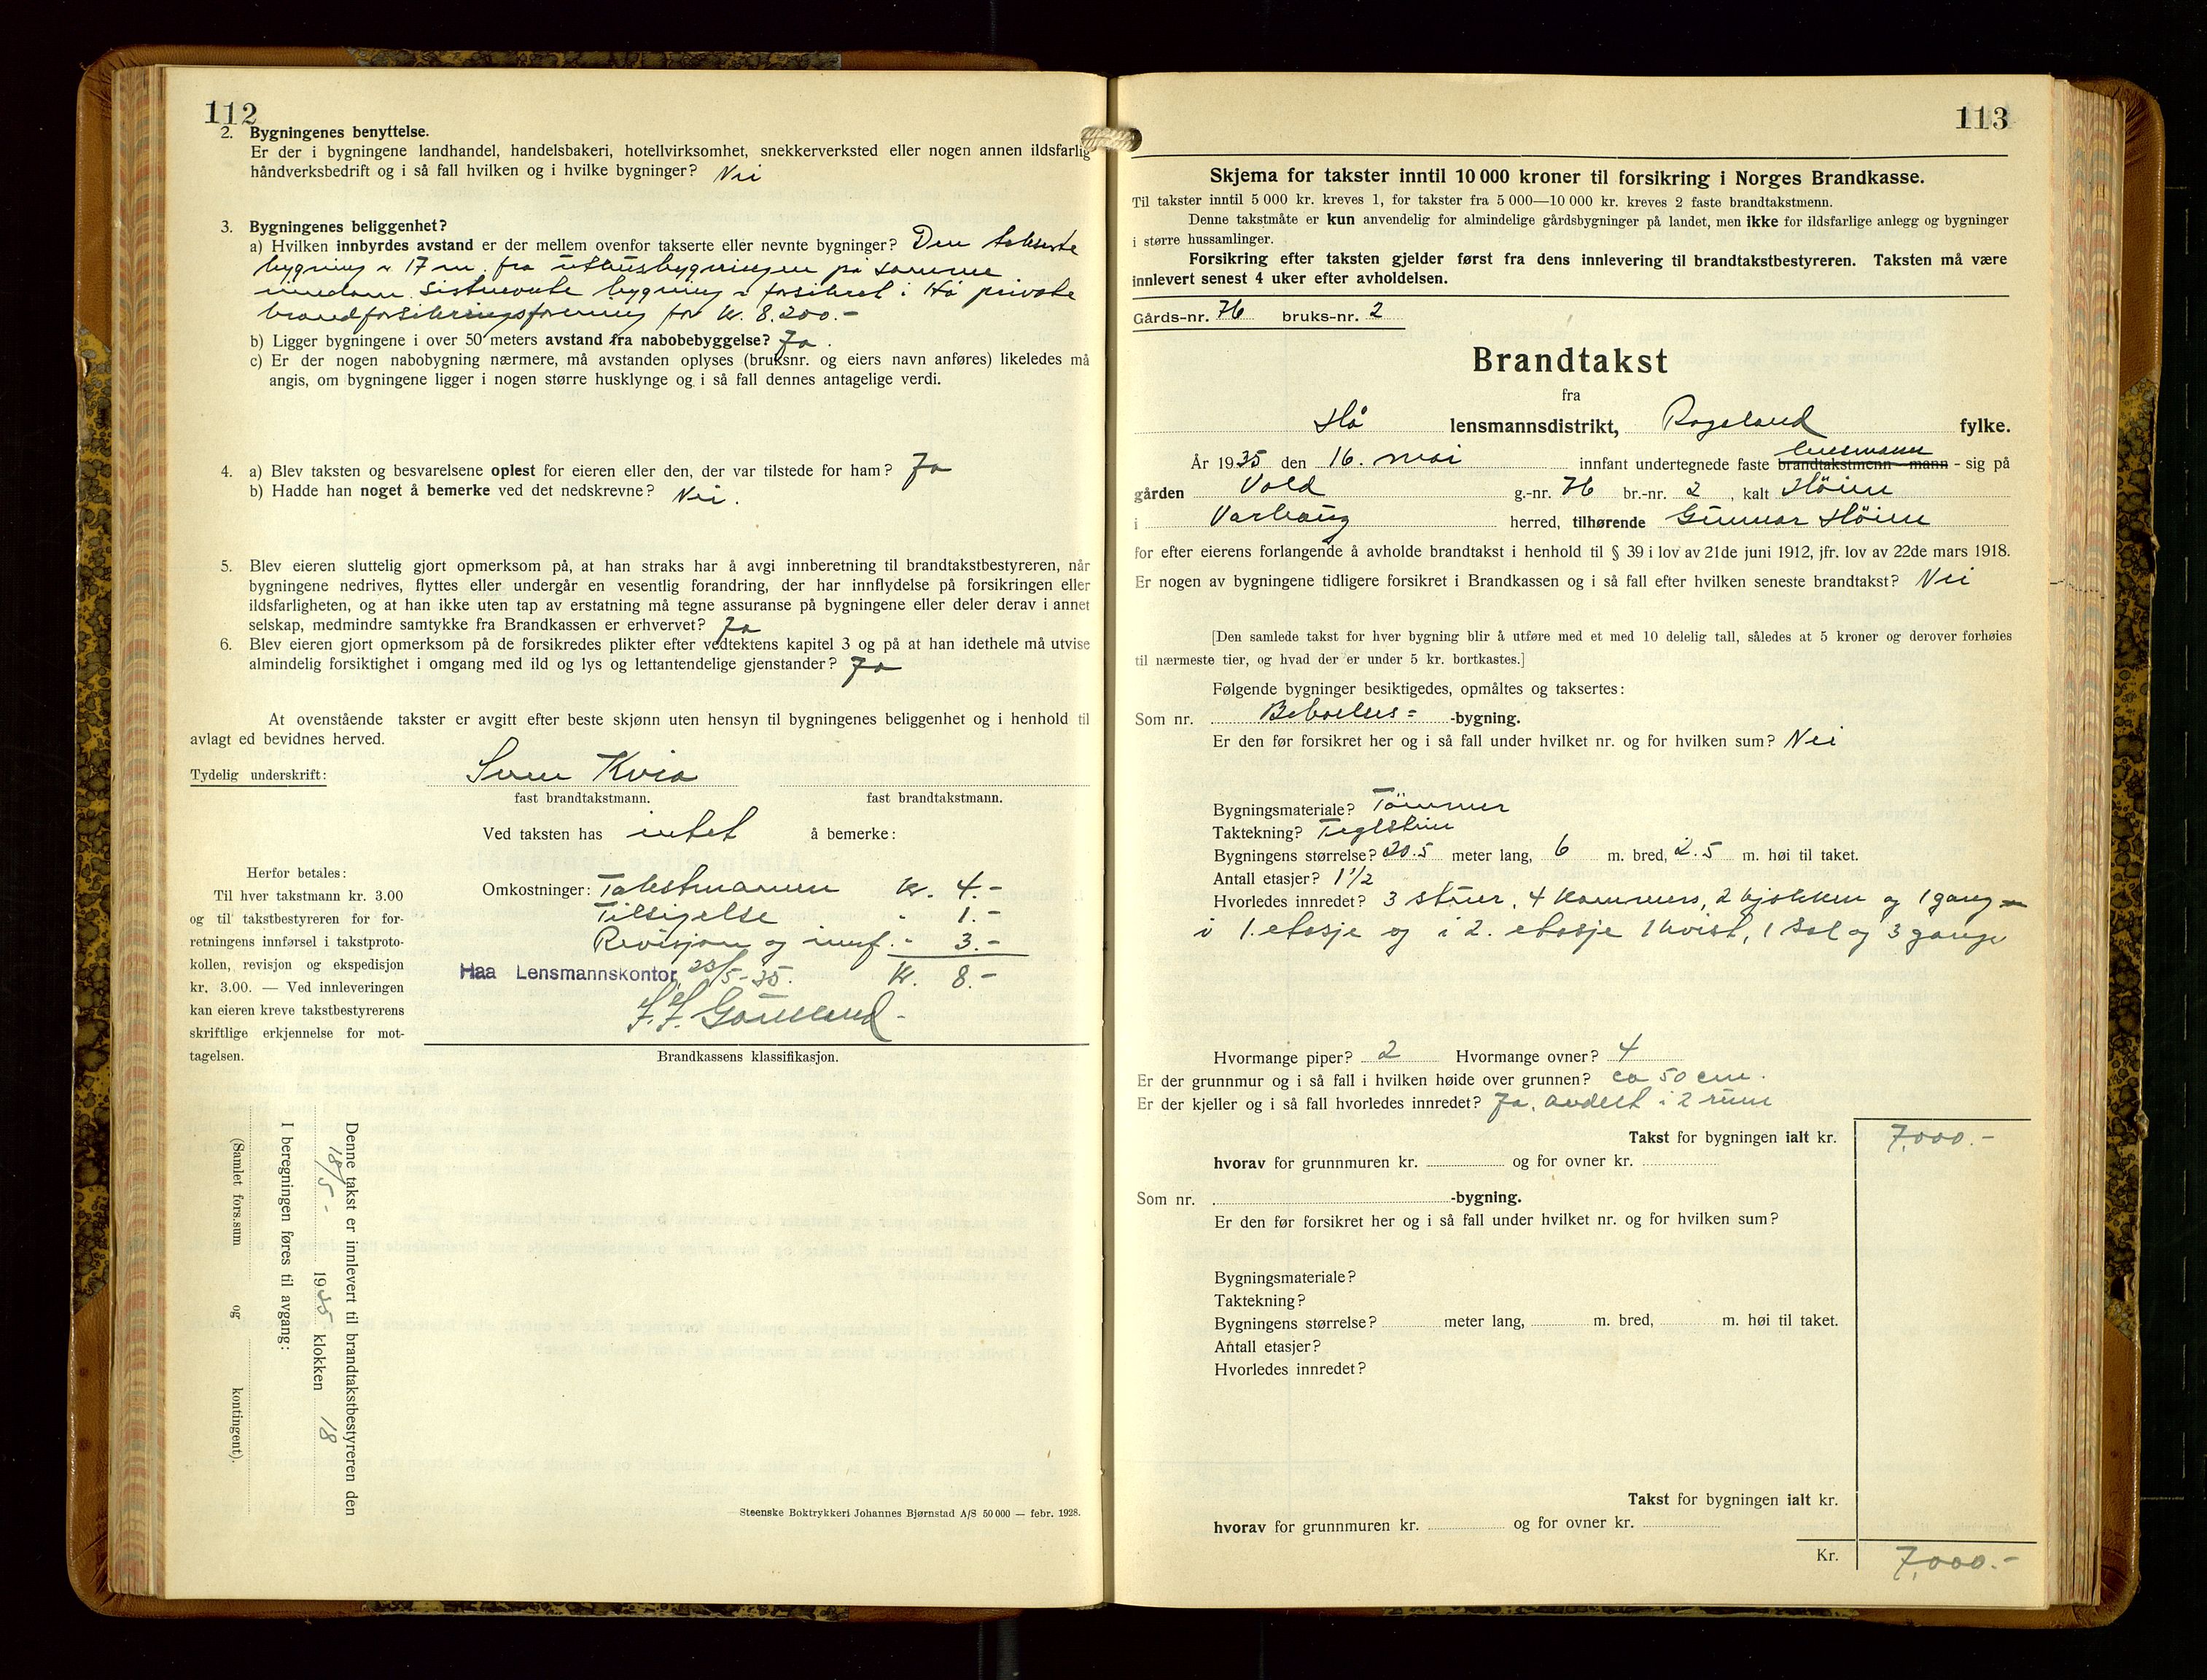 112
2. Bygningenes benyttelse.
Er der i bygningene landhandel, handelsbakeri, hotellvirksomhet, snekkerverksted eller nogen annen ildsfarlig
håndverksbedrift og i så fall hvilken og i hvilke bygninger? Nei
3. Bygningenes beliggenhet?
a) Hvilken innbyrdes avstand er der mellem ovenfor takserte eller nevnte bygninger? Den takserte
bygning er 17 m. fra uthusbygningen på samme
eiendom. Sistnevnte bygning er forsikret i Hå private
brandforsikringsforening for kr. 8.200.-
b) Ligger bygningene i over 50 meters avstand fra nabobebyggelse? Ja.
c) Er der nogen nabobygning nærmere, må avstanden oplyses (bruksnr. og eiers navn anføres) likeledes må
angis, om bygningene ligger i nogen større husklynge og i så fall dennes antagelige verdi.
4. a) Blev taksten og besvarelsene oplest for eieren eller den, der var tilstede for ham? Ja
b) Hadde han noget å bemerke ved det nedskrevne? Nei.
5. Blev eieren sluttelig gjort opmerksom på, at han straks har å avgi innberetning til brandtakstbestyreren, når
bygningene nedrives, flyttes eller undergår en vesentlig forandring, der har innflydelse på forsikringen eller
ildsfarligheten, og at han ikke uten tap av erstatning må tegne assuranse på bygningene eller deler derav i annet
selskap, medmindre samtykke fra Brandkassen er erhvervet? Ja
6. Blev eieren gjort opmerksom på de forsikredes plikter efter vedtektens kapitel 3 og på at han idethele må utvise
almindelig forsiktighet i omgang med ild og lys og lettantendelige gjenstander? Ja
At ovenstående takster er avgitt efter beste skjønn uten hensyn til bygningenes beliggenhet og i henhold til
avlagt ed bevidnes herved.
Tydelig underskrift: Sven Kvia
fast brandtakstmann. fast brandtakstmann.
Ved taksten has intet å bemerke:
Herfor betales:
Til hver takstmann kr. 3.00
og til takstbestyreren for for-
retningens innførsel i takstproto-
kollen, revisjon og ekspedisjon
kr. 3.00. — Ved innleveringen
kan eieren kreve takstbestyrerens
skriftlige erkjennelse for mot-
tagelsen.
Omkostninger: Takstmannen kr. 4.-
Tilsigelse " 1.-
Revisjon og innf. " 3.-
Haa Lensmannskontor, 23/5-35. kr. 8.-
Brandkassens klassifikasjon.
Denne takst er innlevert til brandtakstbestyreren den
18/5- 1935 klokken 18
I beregningen føres til avgang:
(Samlet fors.sum og kontingent).
Steenske Boktrykkeri Johannes Bjørnstad A/S 50 000 — febr. 1928.
113
Skjema for takster inntil 10 000 kroner til forsikring i Norges Brandkasse.
Til takster inntil 5 000 kr. kreves 1, for takster fra 5 000—10 000 kr. kreves 2 faste brandtakstmenn.
Denne takstmåte er kun anvendelig for almindelige gårdsbygninger på landet, men ikke for ildsfarlige anlegg og bygninger
i større hussamlinger.
Forsikring efter taksten gjelder først fra dens innlevering til brandtakstbestyreren. Taksten må være
innlevert senest 4 uker efter avholdelsen.
Gårds-nr. 76 bruks-nr. 2
Brandtakst
fra
Hå lensmannsdistrikt, Rogaland fylke.
lensmann
År 1935 den 16. mai innfant undertegnede faste brandtakstmenn - mann - sig på
gården Vold g.-nr. 76 br.-nr. 2, kalt Höien
i Varhaug herred, tilhørende Gunnar Höien
for efter eierens forlangende å avholde brandtakst i henhold til § 39 i lov av 21de juni 1912, jfr. lov av 22de mars 1918.
Er nogen av bygningene tidligere forsikret i Brandkassen og i så fall efter hvilken seneste brandtakst? Nei
[Den samlede takst for hver bygning blir å utføre med et med 10 delelig tall, således at 5 kroner og derover forhøies
til nærmeste tier, og hvad der er under 5 kr. bortkastes.]
Følgende bygninger besiktigedes, opmåltes og taksertes:
Som nr. Beboelses= -bygning.
Er den før forsikret her og i så fall under hvilket nr. og for hvilken sum? Nei
Bygningsmateriale? Tömmer
Taktekning? Teglstein
Bygningens størrelse? 20.5 meter lang, 6 m. bred, 2.5 m. høi til taket.
Antall etasjer? 1 1/2
Hvorledes innredet? 3 stuer, 4 kammers, 2 kjökken og 1 gang
i 1. etasje og i 2. etasje 1 kvist, 1 sal og 3 gange
Hvormange piper? 2 Hvormange ovner? 4
Er der grunnmur og i så fall i hvilken høide over grunnen? ca 50 cm.
Er der kjeller og i så fall hvorledes innredet? Ja, avdelt i 2 rum
Takst for bygningen ialt kr. 7,000.-
hvorav for grunnmuren kr. og for ovner kr.
Som nr. -bygning.
Er den før forsikret her og i så fall under hvilket nr. og for hvilken sum?
Bygningsmateriale?
Taktekning?
Bygningens størrelse? meter lang, m. bred, m. høi til taket.
Antall etasjer?
Hvorledes innredet?
Takst for bygningen ialt kr.
hvorav for grunnmuren kr. og for ovner kr.
Kr. 7,000.-